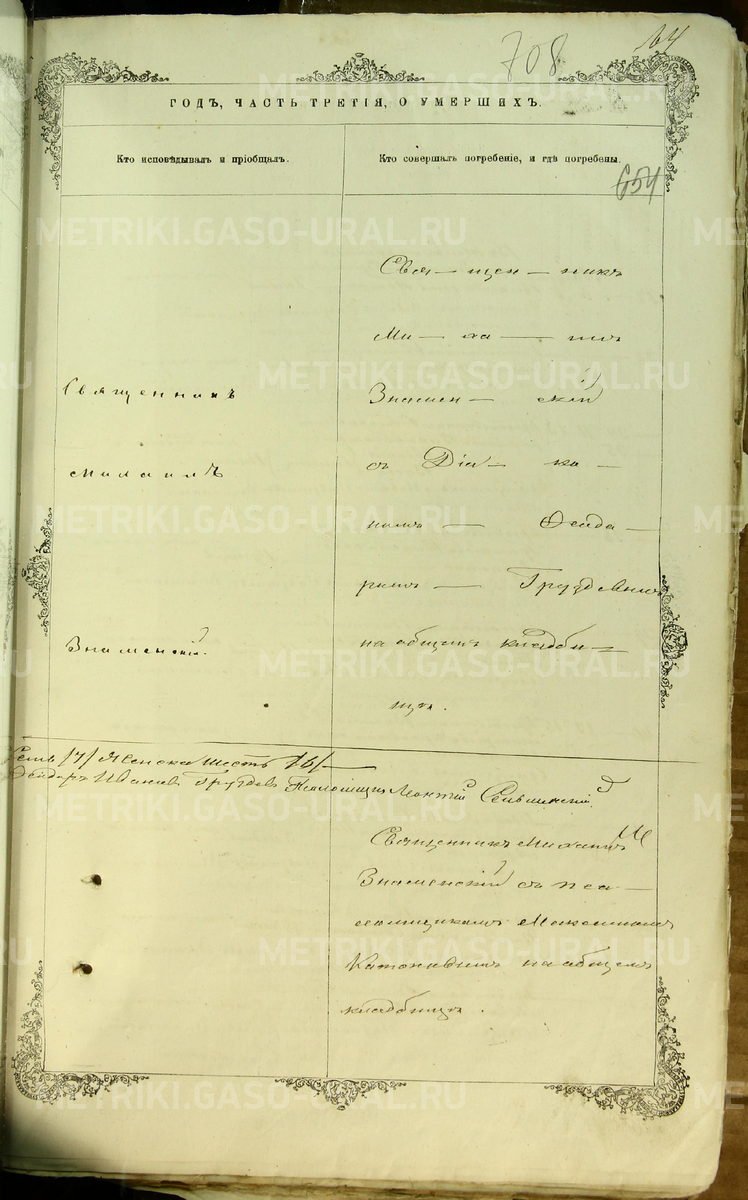 708
64
ГОДЪ, ЧАСТЬ ТРЕТІЯ, О УМЕРШИХЪ.
Кто исповѣдывалъ и пріобщалъ.
Кто совершалъ погребеніе, и гдѣ погребены.
654
Священникъ
Михаилъ
Знаменскій.
Свя— щен— никъ
Ми— ха— илъ
Знамен— скій
съ Діа— ко—
номъ — Ѳеодо—
ромъ — Груздевымъ
на общемъ кладби—
щѣ.
семь /7/ Женска шесть /6/—
Иванов Груздев Псаломщикъ
Священникъ Михаилъ
Знаменскій съ пса—
ломщикомъ
на общемъ
кладбищѣ.
METRIKI.GASO-URAL.RU